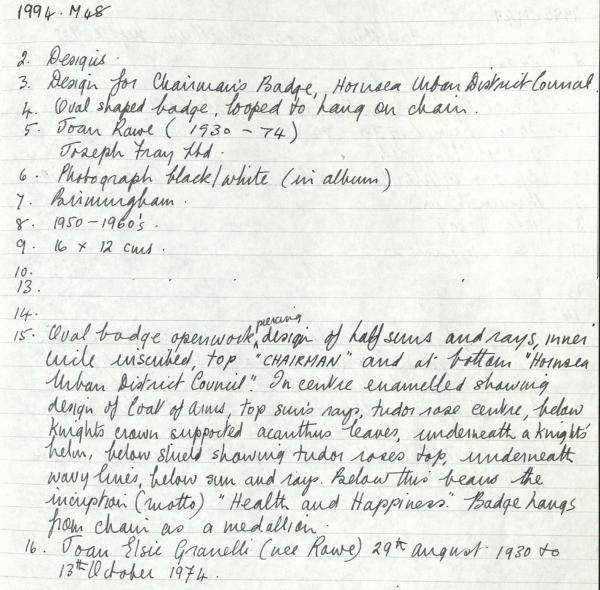 1994.M48
2. Designs.
3. Design for Chairman's Badge, Hornsea Urban District Council.
4. Oval shaped badge, looped to hang on chain.
5. Joan Rawe (1930 - 74)
Joseph Fray Ltd.
6. Photograph black/white (in album)
7. Birmingham.
8. 1950 - 1960's.
9. 16 x 12 cms.
10.
13.
14.
15. Oval badge openwork piercing design of half suns and rays, inner
circle inscribed, top "CHAIRMAN" and at bottom "Hornsea
Urban District Council". In centre enamelled showing
design of Coat of Arms, top sun's rays, tudor rose centre, below
Knights crown supported acanthus leaves, underneath a knights'
helm, below shield showing tudor roses top, underneath
wavy lines, below sun and rays. Below this bears the
incription (motto) "Health and Happiness." Badge hangs
from chain as a medallion.
16. Joan Elsie Granelli (nee Rawe) 29th august 1930 to
13th October 1974.